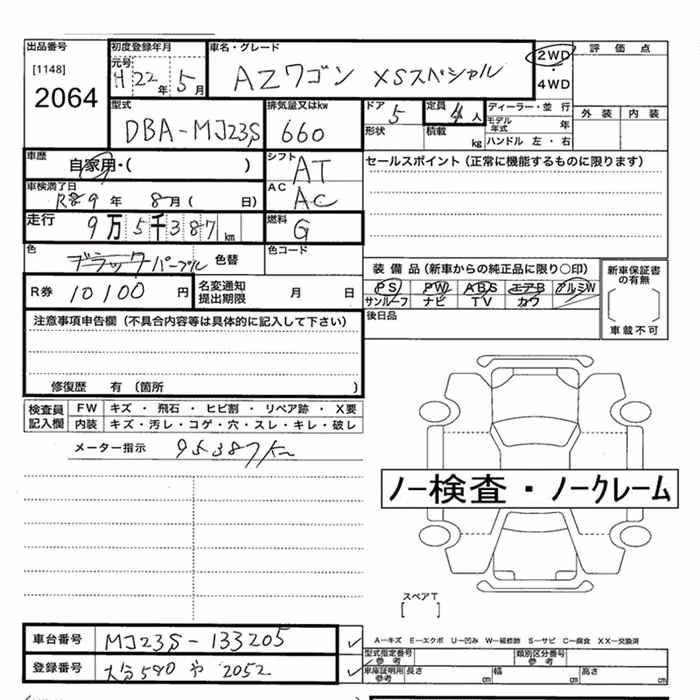 出品番号 初度登録年月 車名・グレード 2WD 評価点
[1148] 元号 H 22年 5月 AZワゴン XSスペシャル ・ 4WD
2064 型式 排気量又はkw ドア 5 定員 4人 ディーラー・並行 外装 内装
DBA-MJ23S 660 形状 積載 kg モデル年式 年
ハンドル 左・右
車歴 自家用・( ) シフト AT セールスポイント（正常に機能するものに限ります）
車検満了日 R 9年 8月 ( 日) AC AC
走行 9万5千387km 燃料 G
色 ブラックパープル 色替 色コード
装備品（新車からの純正品に限り○印） 新車保証書の有無
R券 10100円 名変通知提出期限 月 日 PS PW ABS エアB アルミW
サンルーフ ナビ TV カワ
後日品 車載不可
注意事項申告欄（不具合内容等は具体的に記入して下さい）
修復歴 有（箇所 ）
検査員記入欄 FW キズ・飛石・ヒビ割・リペア跡・X要
内装 キズ・汚レ・コゲ・穴・スレ・キレ・破レ
メーター指示 95387km
ノー検査・ノークレーム
スペアT
[ ]
車台番号 MJ23S-133205
A-キズ E-エクボ U-凹み W-補修跡 S-サビ C-腐食 XX-交換済
型式指定番号 参考 類別区分番号 参考
登録番号 大分580 や 2052 車庫証明用 参考 長さ cm 幅 cm 高さ cm